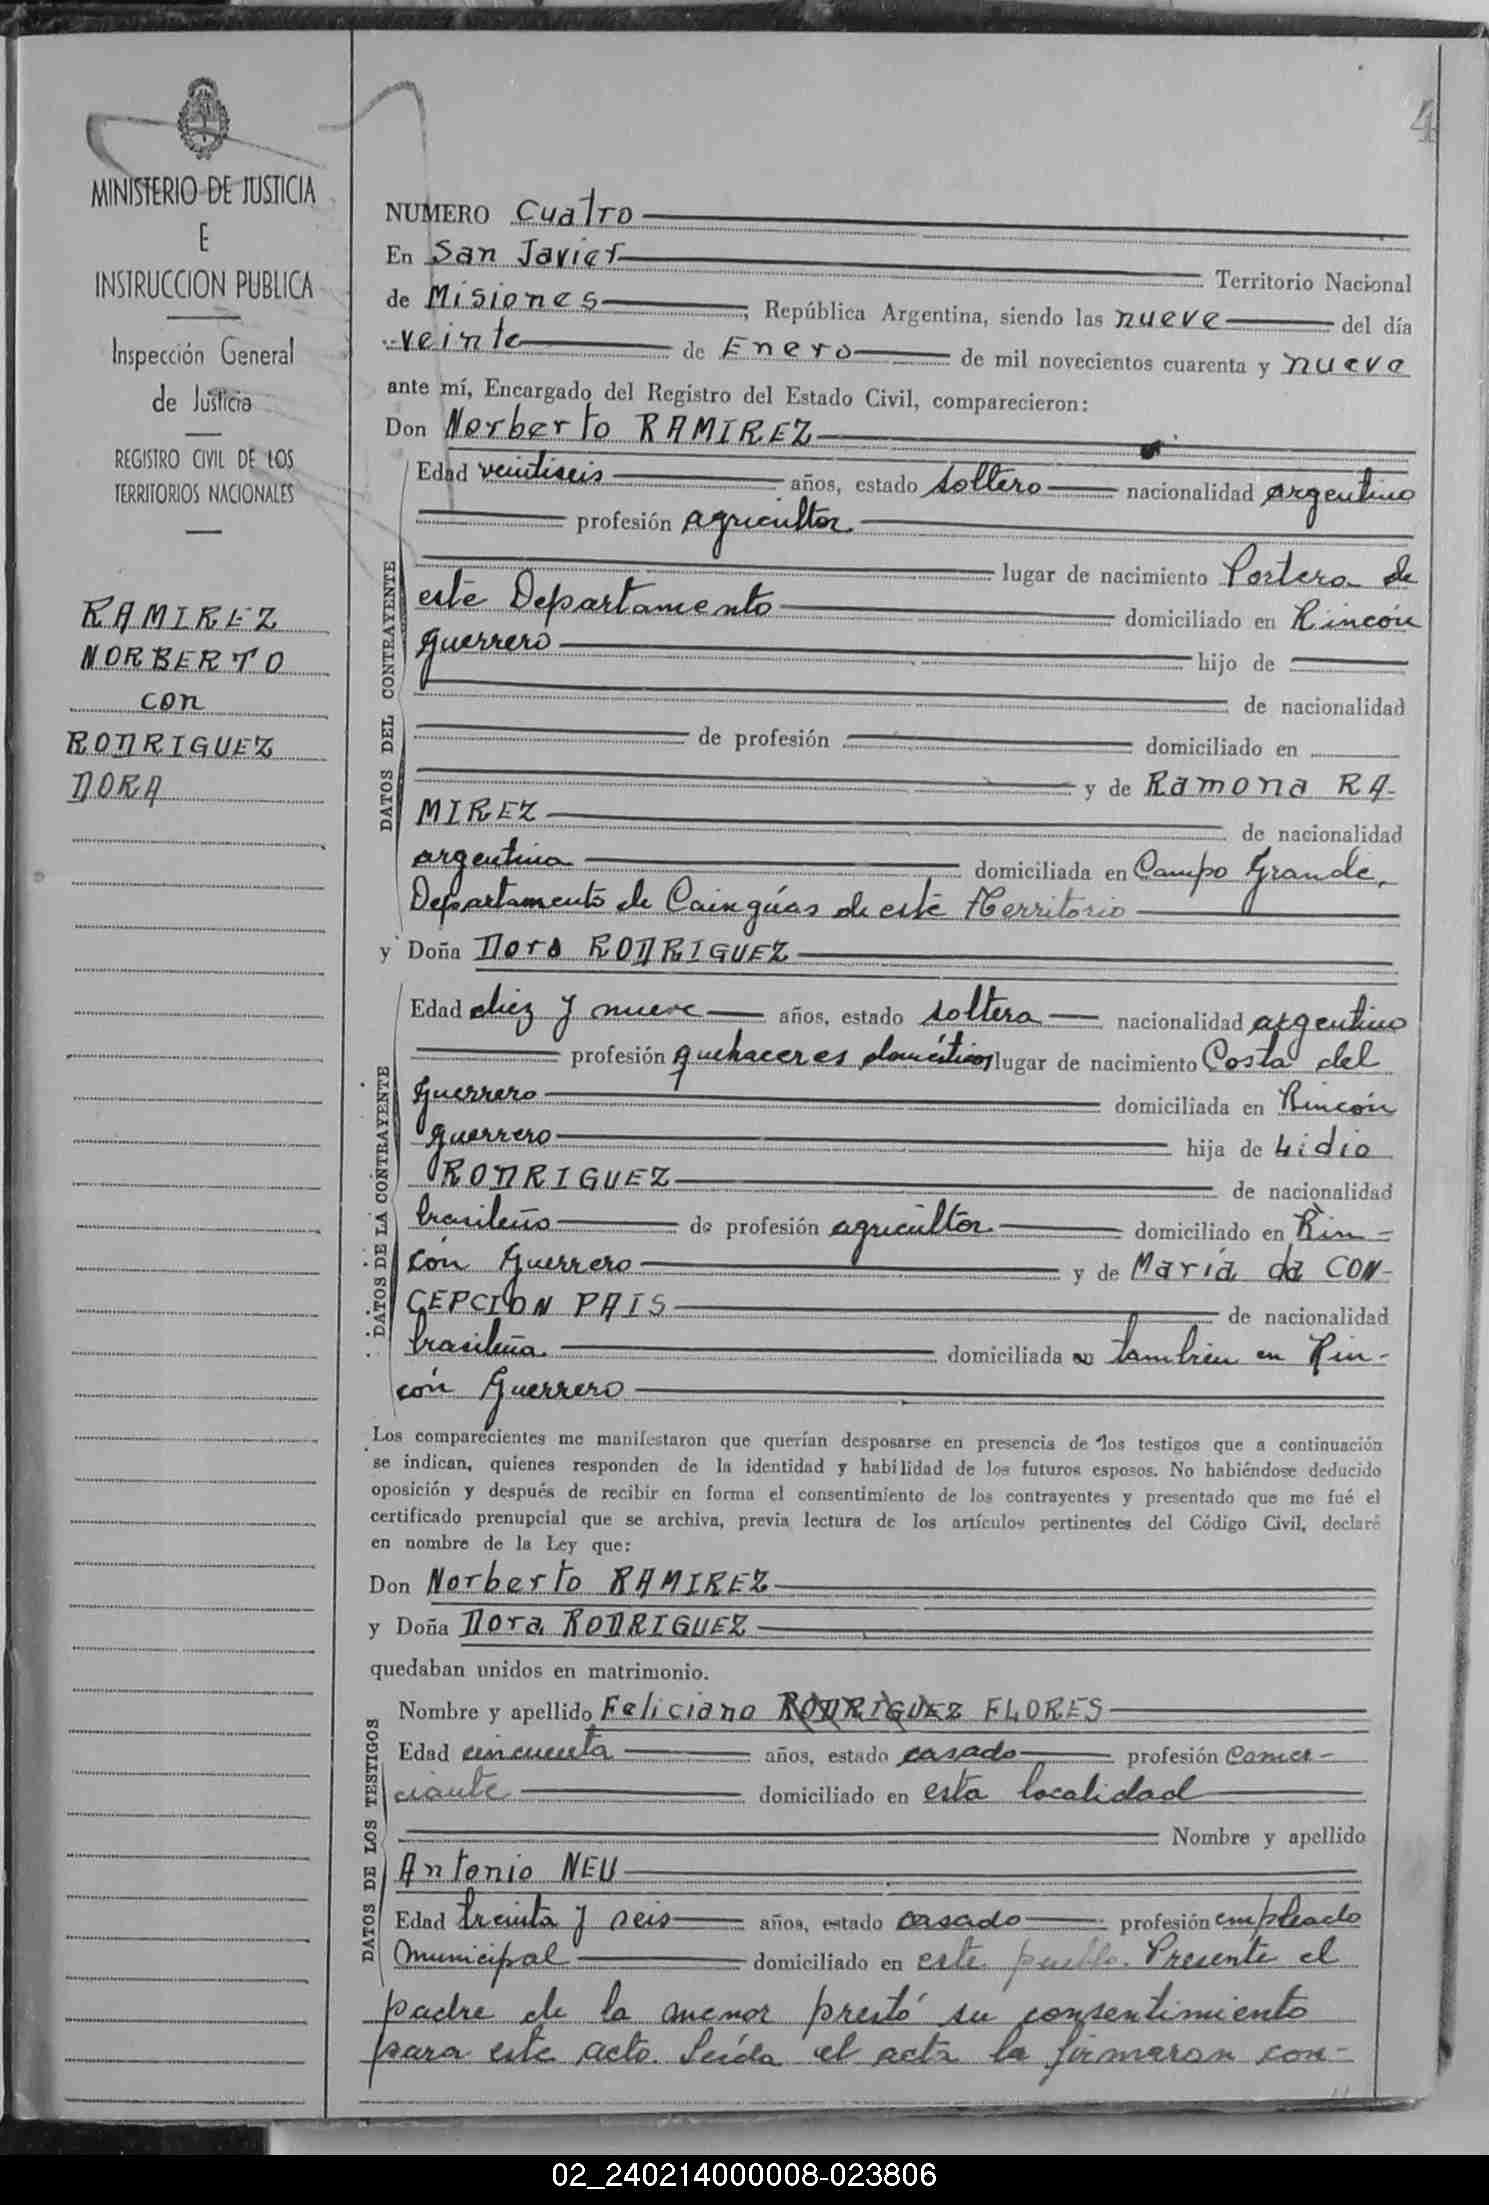 4
MINISTERIO DE JUSTICIA
E
INSTRUCCION PUBLICA
Inspección General
de Justicia
REGISTRO CIVIL DE LOS
TERRITORIOS NACIONALES
RAMIREZ
NORBERTO
con
RODRIGUEZ
DORA
NUMERO Cuatro
En San Javier Territorio Nacional
de Misiones, República Argentina, siendo las nueve del día
veinte de Enero de mil novecientos cuarenta y nueve
ante mí, Encargado del Registro del Estado Civil, comparecieron:
Don Norberto RAMIREZ
DATOS DEL CONTRAYENTE
Edad veintiseis años, estado soltero nacionalidad argentino
profesión agricultor
lugar de nacimiento Portera de
este Departamento domiciliado en Rincón
Guerrero hijo de
de nacionalidad
de profesión domiciliado en
y de Ramona RA-
MIREZ de nacionalidad
argentina domiciliada en Campo Grande,
Departamento de Cainguás de este Territorio
y Doña Dora RODRIGUEZ
DATOS DE LA CONTRAYENTE
Edad diez y nueve años, estado soltera nacionalidad argentino
profesión quehaceres domésticos lugar de nacimiento Costa del
Guerrero domiciliada en Rincón
Guerrero hija de Lidio
RODRIGUEZ de nacionalidad
brasileño de profesión agricultor domiciliado en Rin-
cón Guerrero y de María da CON-
CEPCION PAIS de nacionalidad
brasileña domiciliada en también en Rin-
cón Guerrero
Los comparecientes me manifestaron que querían desposarse en presencia de los testigos que a continuación
se indican, quienes responden de la identidad y habilidad de los futuros esposos. No habiéndose deducido
oposición y después de recibir en forma el consentimiento de los contrayentes y presentado que me fué el
certificado prenupcial que se archiva, previa lectura de los artículos pertinentes del Código Civil, declaré
en nombre de la Ley que:
Don Norberto RAMIREZ
y Doña Dora RODRIGUEZ
quedaban unidos en matrimonio.
DATOS DE LOS TESTIGOS
Nombre y apellido Feliciano RODRIGUEZ FLORES
Edad cincuenta años, estado casado profesión comer-
ciante domiciliado en esta localidad
Nombre y apellido
Antonio NEU
Edad treinta y seis años, estado casado profesión empleado
municipal domiciliado en este pueblo. Presente el
padre de la menor prestó su consentimiento
para este acto. Leída el acta la firmaron con-
02_240214000008-023806